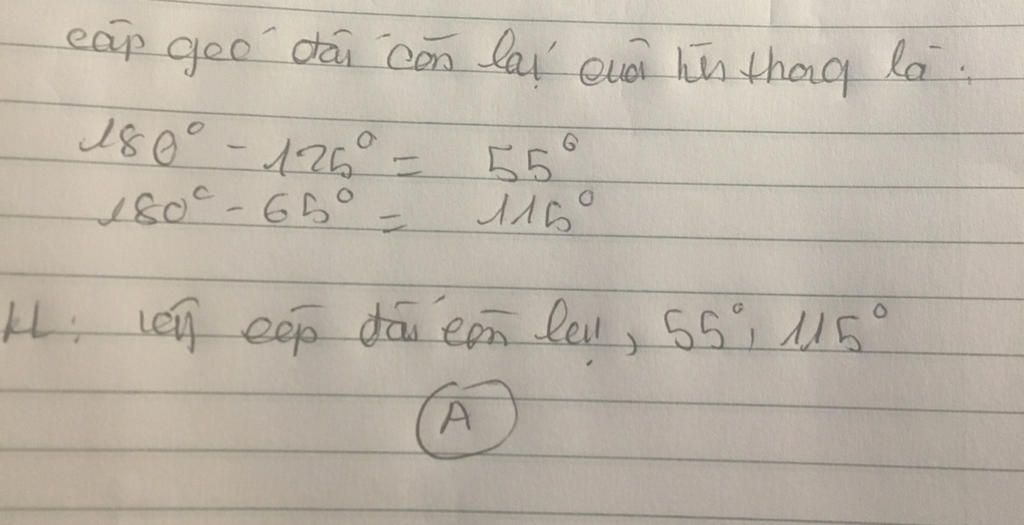 cặp góc đối còn lại của hình thang là:
180° - 125° = 55°
180° - 65° = 115°
KL: Vậy cặp đối còn lại, 55°, 115°
A